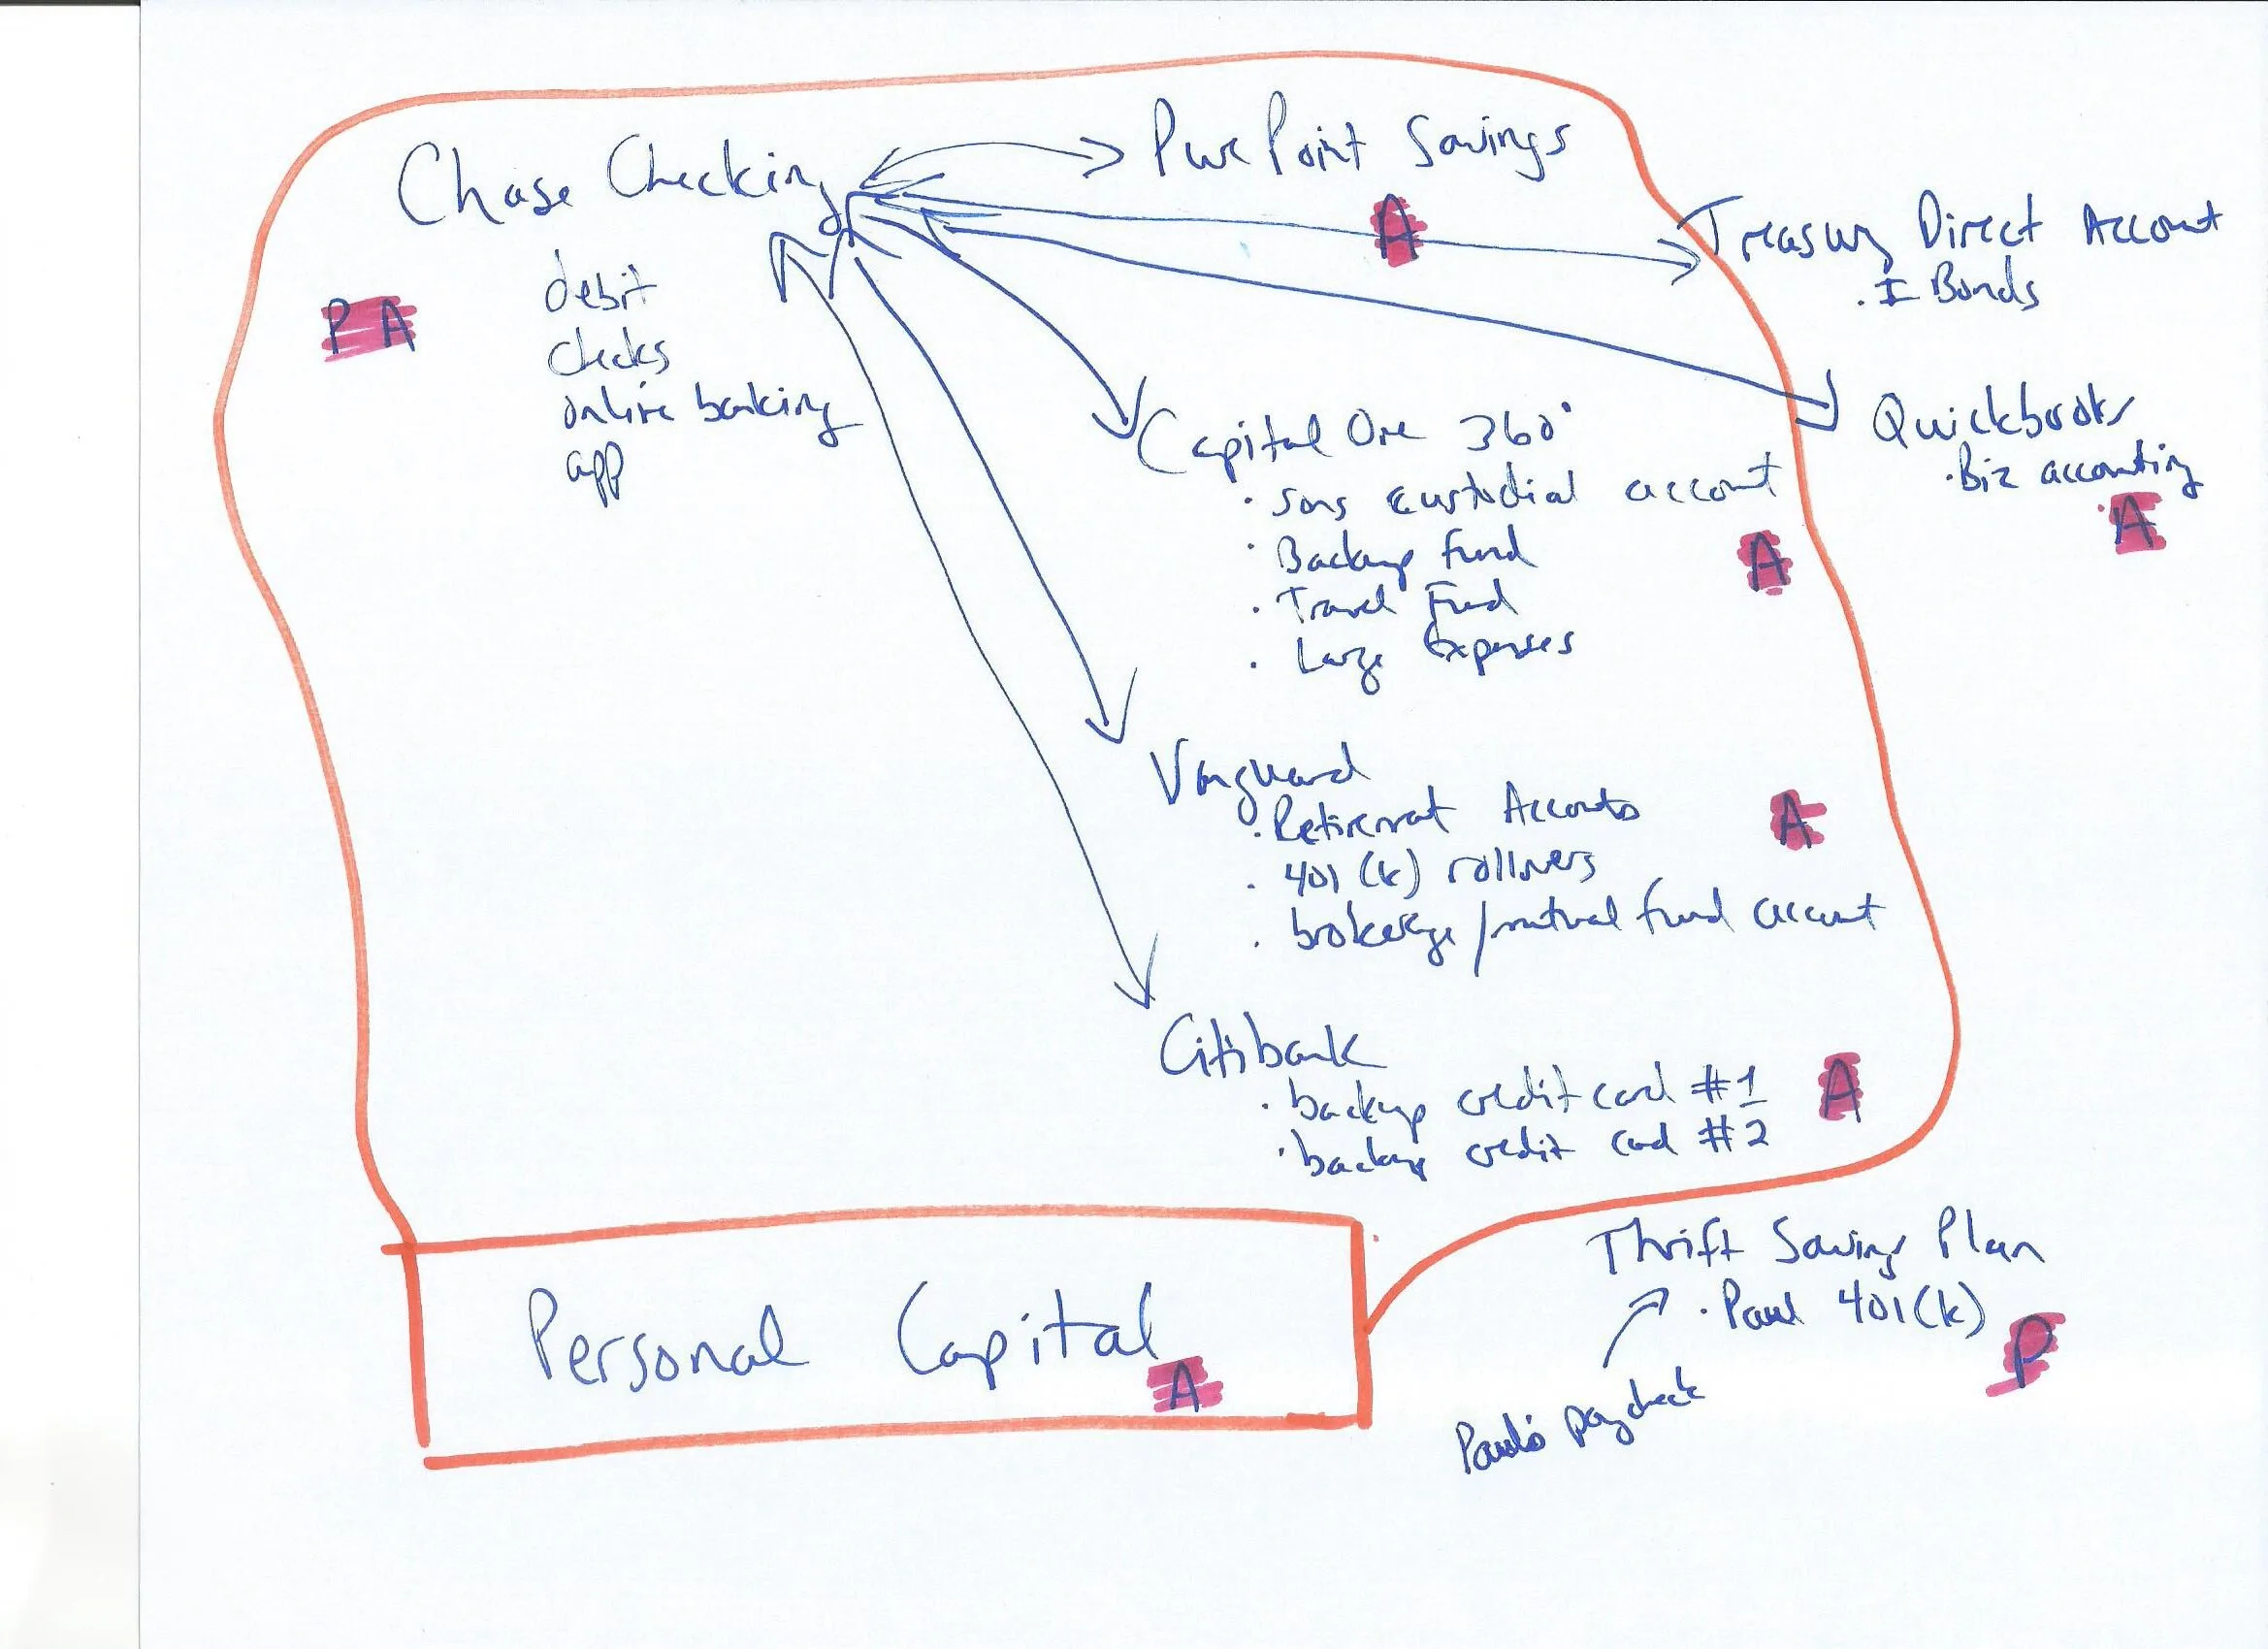 Chase Checking
debit
checks
online banking
app
P A
PurePoint Savings
A
Treasury Direct Account
· I Bonds
Quickbooks
· Biz accounting
A
Capital One 360°
· Sons custodial account
· Backup fund
· Travel Fund
· Large Expenses
A
Vanguard
· Retirement Accounts
· 401(k) rollovers
· brokerage/mutual fund account
A
Citibank
· backup credit card #1
· backup credit card #2
A
Personal Capital
A
Thrift Savings Plan
· Paul 401(k)
P
Paul's paycheck